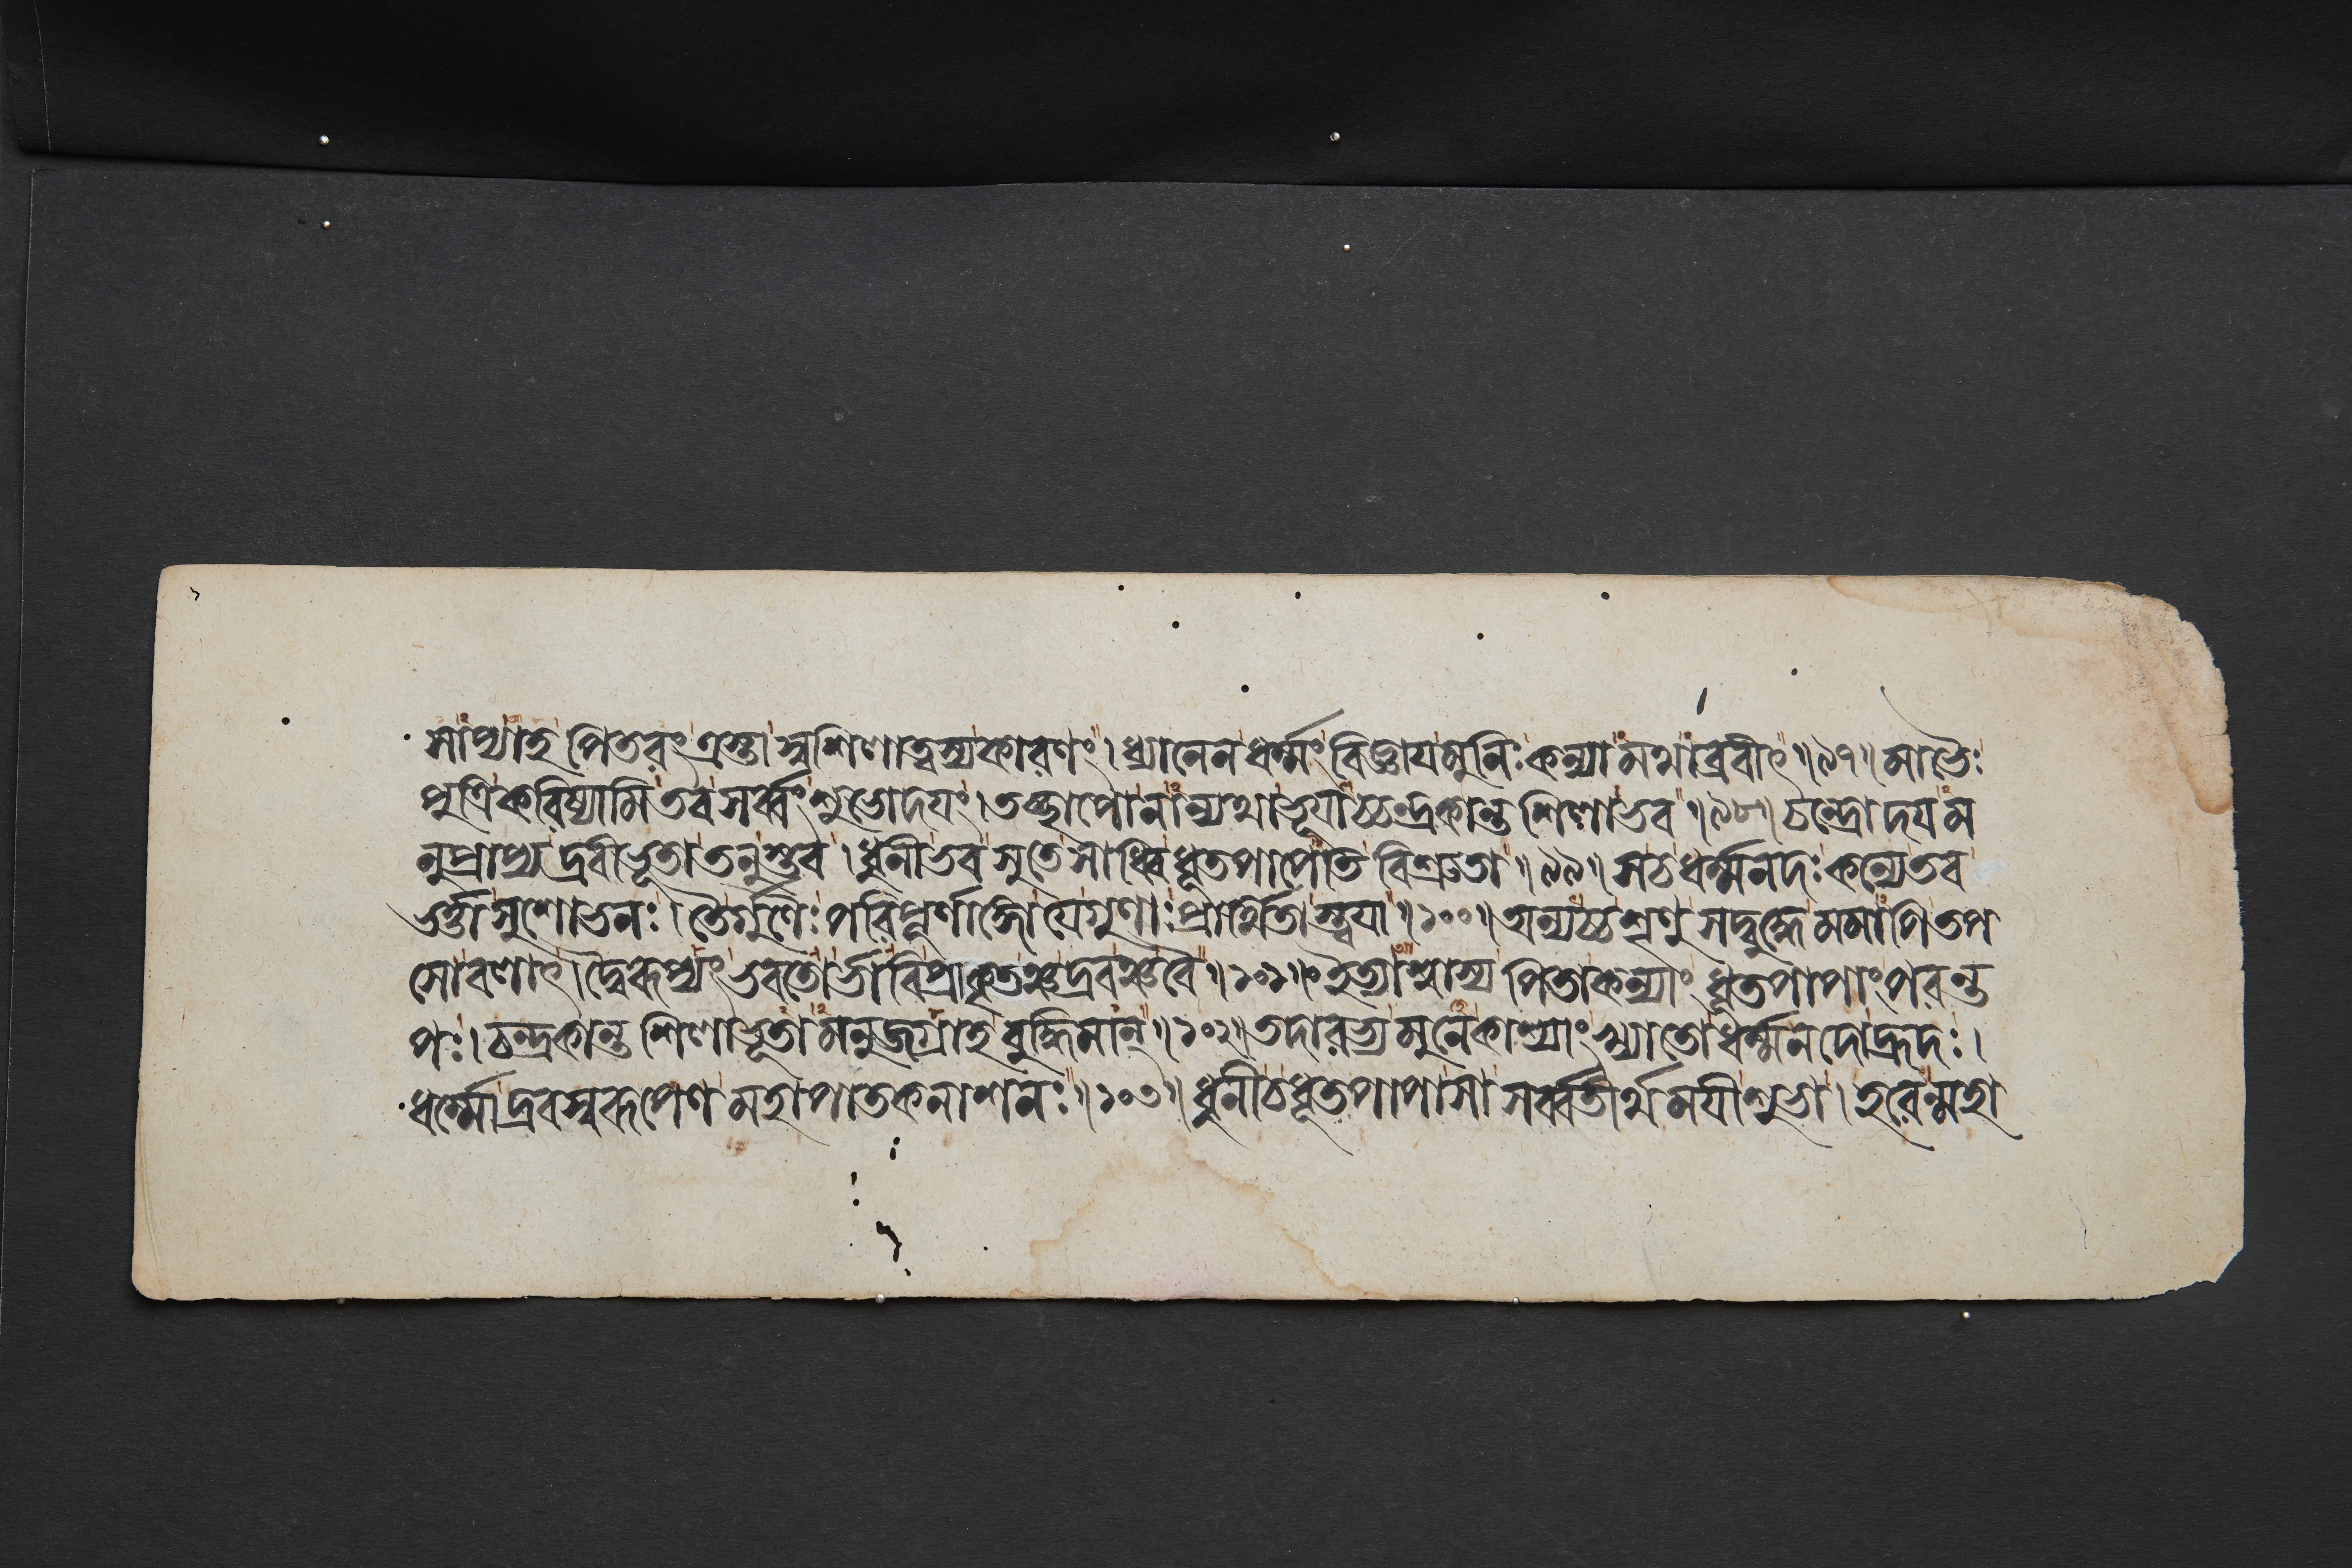 সাপ্যাহ পিতরং ত্রস্তা স্বশিলাত্বস্য কারণং। ধ্যানেন ধর্ম্মং বিজ্ঞায মুনিঃ কন্যামথাব্রবীৎ॥৯৭॥ মাভৈঃ
পুত্রি করিষ্যামি তব সর্ব্বং শুভোদযং। তচ্ছাপো নান্যথা ভূযাচ্চন্দ্রকান্ত শিলাভব॥৯৮॥ চন্দ্রোদযম
নুপ্রাপ্য দ্রবীভূতা তনুস্তব। ধুনীভব সুতে সাধ্বি ধূতপাপেতি বিশ্রুতা॥৯৯॥ সচ ধর্ম্মনদঃ কন্যে তব
ভর্ত্তা সুশোভনঃ। তৈর্গুণৈঃ পরিপূর্ণাঙ্গো যে গুণাঃ প্রার্থিতাস্ত্বযা॥১০০॥ অন্যচ্চ শৃণু সদ্বুদ্ধে মমাপি তপ
সোবলাৎ। দ্বৈরূপ্যং ভবতোর্ভাবি প্রাকৃতঞ্চ দ্রবঞ্চ বৈ॥১০১॥ ইত্যাশ্বাস্য পিতা কন্যাং ধূতপাপাং পরন্ত
পঃ। চন্দ্রকান্ত শিলাভূতা মনুজগ্রাহ বুদ্ধিমান্॥১০২॥ তদারভ্য মুনে কাশ্যাং খ্যাতো ধর্ম্মনদোহ্রদঃ।
ধর্ম্মো দ্রবস্বরূপেণ মহাপাতকনাশনঃ॥১০৩॥ ধুনীচ ধূতপাপা সা সর্ব্বতীর্থমযী শুভা। হরেন্মহা